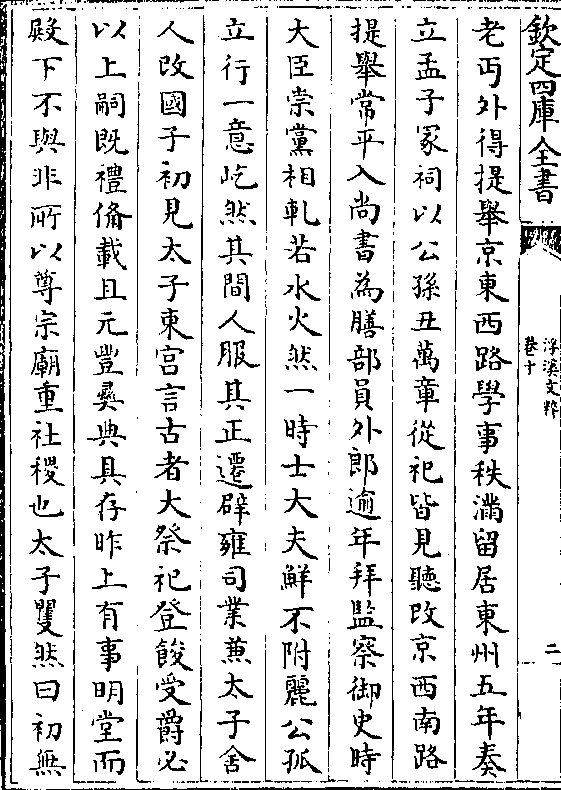 欽定四庫全書
浮溪文粹
卷十
二
老丐外得提舉京東西路學事秩滿留居東州五年奏
立孟子冢祠以公孫丑萬章從祀皆見聽改京西南路
提舉常平入尚書為膳部員外郎逾年拜監察御史時
大臣崇黨相軋若水火然一時士大夫鮮不附麗公孤
立行一意屹然其間人服其正遷辟雍司業兼太子舍
人改國子初見太子東宮言古者大祭祀登餕受爵必
以上嗣既禮偹載且元豐彛典具存昨上有事明堂而
殿下不與非所以尊宗廟重社稷也太子矍然曰初無